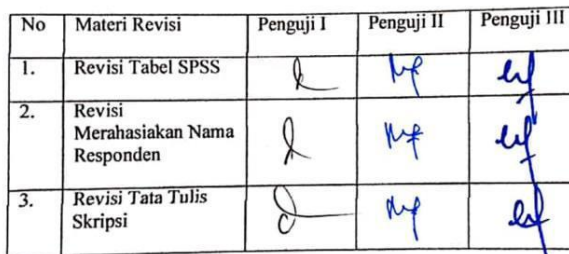 No Materi Revisi Penguji I Penguji II Penguji III
1. Revisi Tabel SPSS
2. Revisi
Merahasiakan Nama
Responden
3. Revisi Tata Tulis
Skripsi